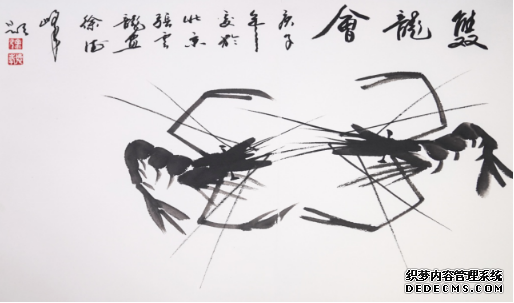 雙龍會
庚子
年
於
北京
張雲
龍画
徐
峰
织梦内容管理系统
DEDECMS.COM